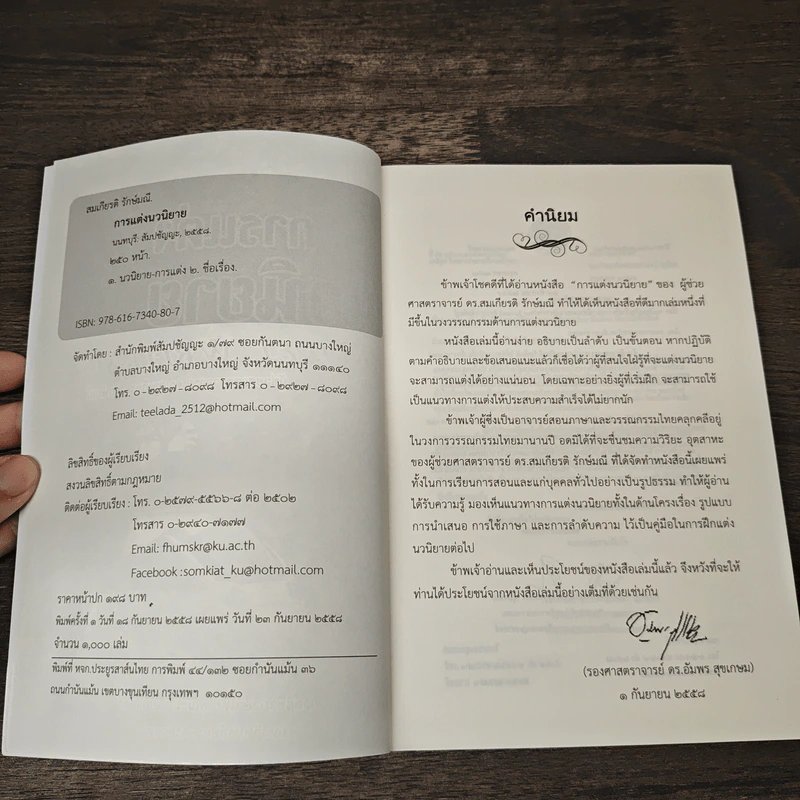 สมเกียรติ รักษ์มณี.
การแต่งนวนิยาย
นนทบุรี: สัมปชัญญะ, ๒๕๕๘.
๒๕๐ หน้า.
๑. นวนิยาย-การแต่ง ๒. ชื่อเรื่อง.
ISBN: 978-616-7340-80-7
จัดทำโดย : สำนักพิมพ์สัมปชัญญะ ๑/๗๙ ซอยกันตนา ถนนบางใหญ่
ตำบลบางใหญ่ อำเภอบางใหญ่ จังหวัดนนทบุรี ๑๑๑๔๐
โทร. ๐-๒๙๒๗-๘๐๙๘ โทรสาร ๐-๒๙๒๗-๘๐๙๘
Email: teelada_2512@hotmail.com
ลิขสิทธิ์ของผู้เรียบเรียง
สงวนลิขสิทธิ์ตามกฎหมาย
ติดต่อผู้เรียบเรียง : โทร. ๐-๒๕๗๙-๕๕๖๖-๘ ต่อ ๒๕๐๒
โทรสาร ๐-๒๙๔๐-๗๑๗๗
Email: fhumskr@ku.ac.th
Facebook :somkiat_ku@hotmail.com
ราคาหน้าปก ๑๙๘ บาท
พิมพ์ครั้งที่ ๑ วันที่ ๑๘ กันยายน ๒๕๕๘ เผยแพร่ วันที่ ๒๓ กันยายน ๒๕๕๘
จำนวน ๑,๐๐๐ เล่ม
พิมพ์ที่ หจก.ประยูรสาส์นไทย การพิมพ์ ๔๔/๑๓๒ ซอยกำนันแม้น ๓๖
ถนนกำนันแม้น เขตบางขุนเทียน กรุงเทพฯ ๑๐๑๕๐
คำนิยม
ข้าพเจ้าโชคดีที่ได้อ่านหนังสือ "การแต่งนวนิยาย" ของ ผู้ช่วย
ศาสตราจารย์ ดร.สมเกียรติ รักษ์มณี ทำให้ได้เห็นหนังสือที่ดีมากเล่มหนึ่งที่
มีขึ้นในวงวรรณกรรมด้านการแต่งนวนิยาย
หนังสือเล่มนี้อ่านง่าย อธิบายเป็นลำดับ เป็นขั้นตอน หากปฏิบัติ
ตามคำอธิบายและข้อเสนอแนะแล้วก็เชื่อได้ว่าผู้ที่สนใจใฝ่รู้ที่จะแต่งนวนิยาย
จะสามารถแต่งได้อย่างแน่นอน โดยเฉพาะอย่างยิ่งผู้ที่เริ่มฝึก จะสามารถใช้
เป็นแนวทางการแต่งให้ประสบความสำเร็จได้ไม่ยากนัก
ข้าพเจ้าผู้ซึ่งเป็นอาจารย์สอนภาษาและวรรณกรรมไทยคลุกคลีอยู่
ในวงการวรรณกรรมไทยมานานปี อดมิได้ที่จะชื่นชมความวิริยะ อุตสาหะ
ของผู้ช่วยศาสตราจารย์ ดร.สมเกียรติ รักษ์มณี ที่ได้จัดทำหนังสือนี้เผยแพร่
ทั้งในการเรียนการสอนและแก่บุคคลทั่วไปอย่างเป็นรูปธรรม ทำให้ผู้อ่าน
ได้รับความรู้ มองเห็นแนวทางการแต่งนวนิยายทั้งในด้านโครงเรื่อง รูปแบบ
การนำเสนอ การใช้ภาษา และการลำดับความ ไว้เป็นคู่มือในการฝึกแต่ง
นวนิยายต่อไป
ข้าพเจ้าอ่านและเห็นประโยชน์ของหนังสือเล่มนี้แล้ว จึงหวังที่จะให้
ท่านได้ประโยชน์จากหนังสือเล่มนี้อย่างเต็มที่ด้วยเช่นกัน
(รองศาสตราจารย์ ดร.อัมพร สุขเกษม)
๑ กันยายน ๒๕๕๘